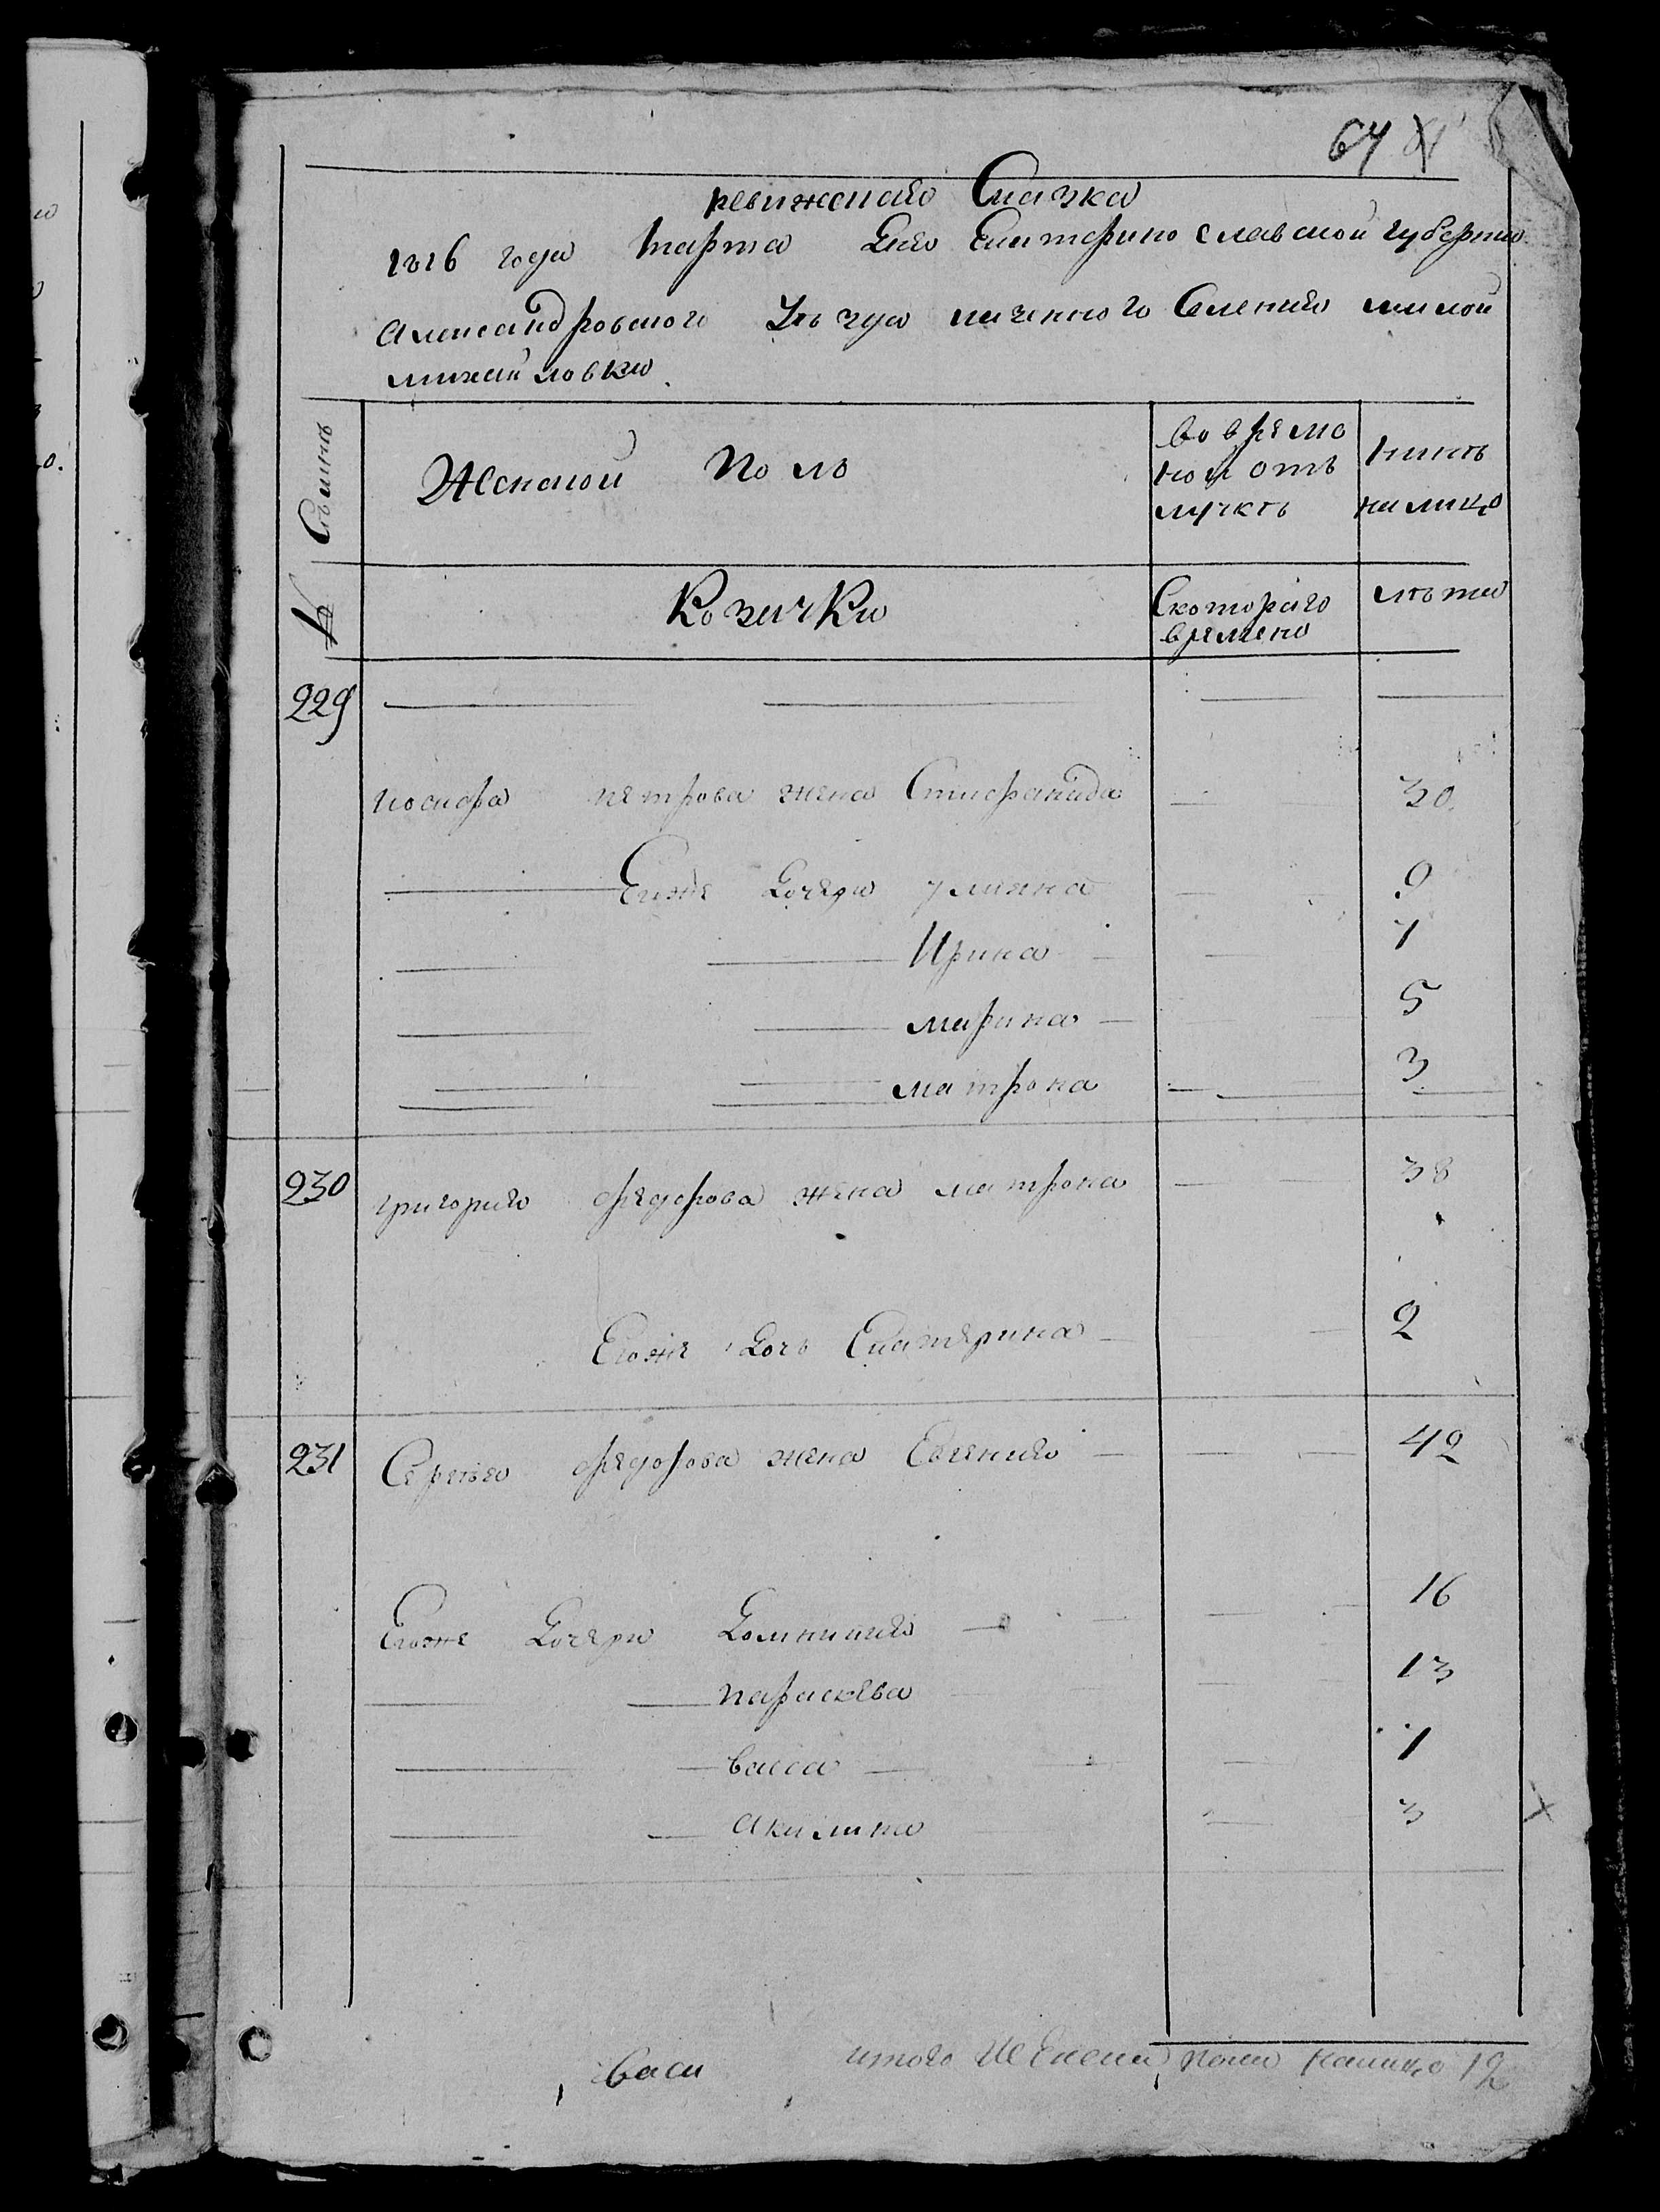 64
ревижская Сказка
1816 года Марта Дня Екатерино славской губернии
Александровского уезда казенного Селения малой
михайловки
№ Семьи
Женской Полъ
во время
ной отъ
лучкѣ
нынѣ
на лицо
Козачки
Скотораго
времено
лѣта
229
иосифа петрова жена Стиефанида 30
Егоже Дочери улияна 9
Ирина 7
марина 5
матрона 3
230 григория федорова жена матрона 38
Егоже Дочь Екатерина 2
231 Сергея федорова жена Евгения 42
Егоже Дочери Домникия 16
параскева 13
васса 7
Акилина 3
итого Женска пола налицо 12
васи